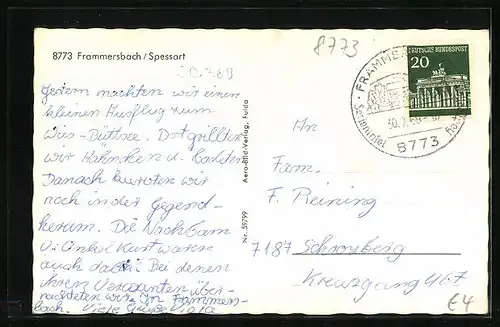 8773 Frammersbach/Spessart
30.7.69
8773
Gestern machten wir einen
kleinen Ausflug zum
Dort grillten
wir Hähnchen u. badeten
Danach kurvten wir
noch in der Gegend-
herum. Die Nachbarn
u. Onkel Kurt waren
auch dabei. Bei denen
ihren Verwanten über-
nachteten wir. In Frammers-
bach. Viele Grüße
Aero-Bild-Verlag, Fulda
Nr. 59799
20 DEUTSCHE BUNDESPOST
FRAMME
30.7.
8773
An
Fam.
F. Reining
7187 Schrozberg
Kreuzgang 467
€4